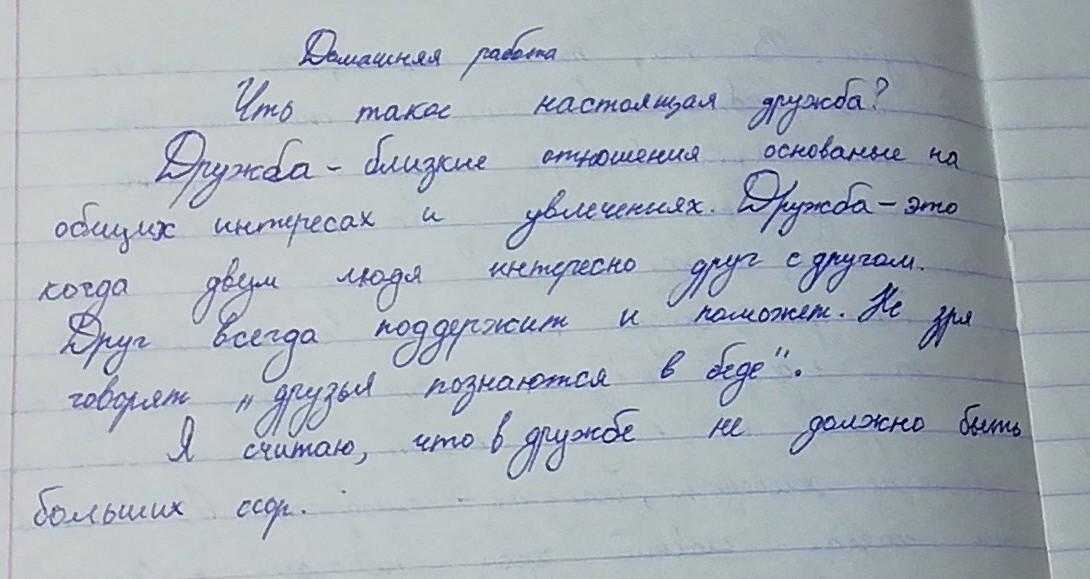 Домашняя работа
Что такое настоящая дружба?
Дружба – близкие отношения основаные на
общих интересах и увлечениях. Дружба – это
когда двум людя интересно друг с другом.
Друг всегда поддержит и поможет. Не зря
говорят „друзья познаются в беде".
Я считаю, что в дружбе не должно быть
больших ссор.